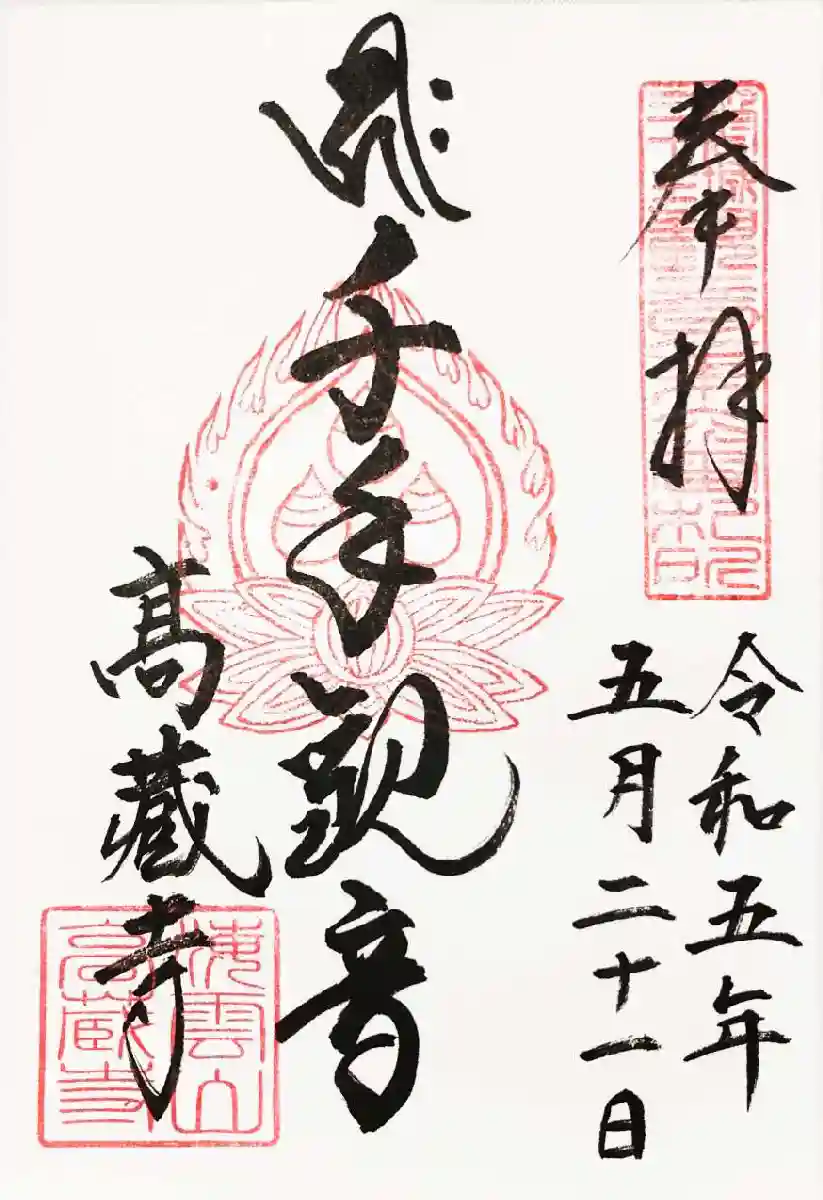 奉拝
令和五年
五月二十一日
千手観音
髙蔵寺
海雲山
高蔵寺